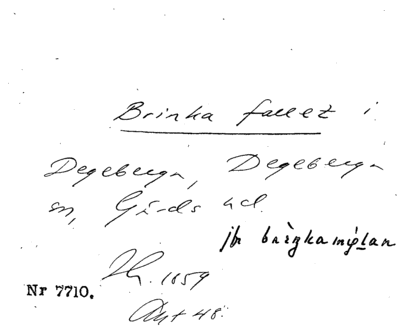 Brinka fallet i
Degeberga, Degeberga
sn, Gärds hd.
jfr bärgkamöplan
1859
Nr 7710.
48.